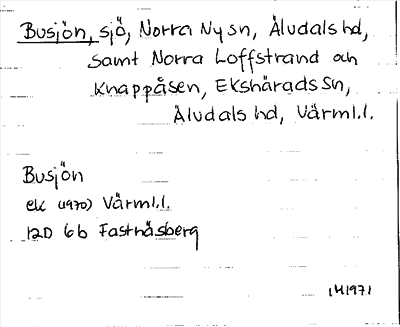 Busjön, sjö, Norra Ny sn, Äludals hd,
samt Norra Loffstrand och
Knappåsen, Ekshärads Sn,
Äludals hd, Värml.l.
Busjön
ek (1970) Värml.l.
12D 6b Fastnäsberg
1971